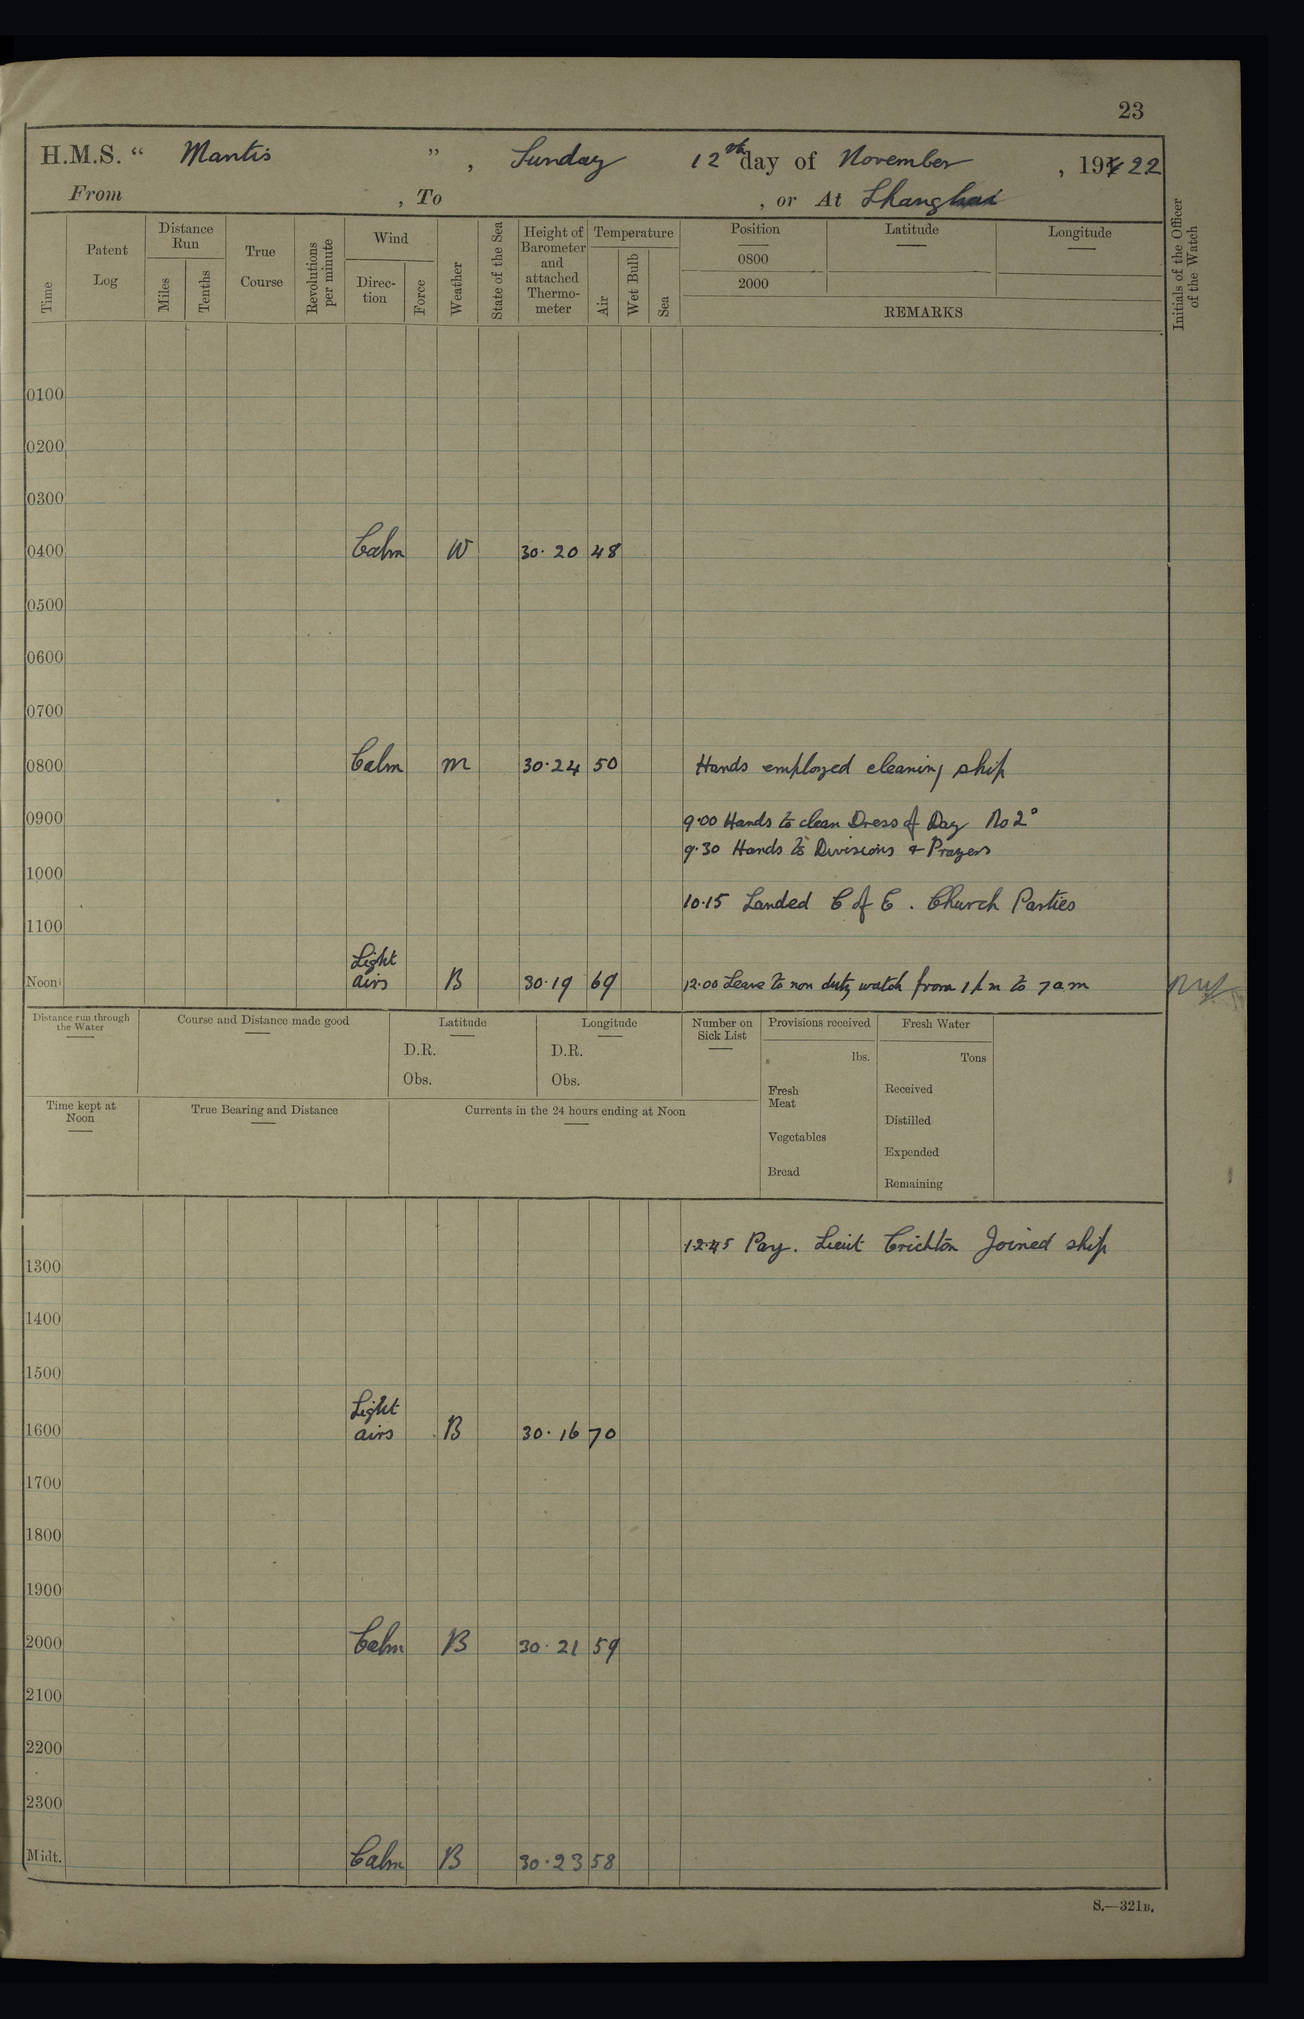 23
H.M.S. “ Mantis ” , Sunday 12th day of November , 1922
From , To , or At Shanghai
Time
Patent Log
Distance Run
Miles
Tenths
True Course
Revolutions per minute
Wind
Direc-tion
Force
Weather
State of the Sea
Height of Barometer and attached Thermo-meter
Temperature
Air
Wet Bulb
Sea
Position
0800
2000
Latitude
Longitude
REMARKS
Initials of the Officer of the Watch
0100
0200
0300
0400 Calm W 30.20 48
0500
0600
0700
0800 Calm m 30.24 50 Hands employed cleaning ship
0900 9.00 Hands to clean Dress of Day No 2°
9.30 Hands to Divisions & Prayers
1000
10.15 Landed C of E. Church Parties
1100
Noon Light airs B 30.19 69 12.00 Leave to non duty watch from 1 pm to 7 am
Distance run through the Water
Course and Distance made good
Latitude
D.R.
Obs.
Longitude
D.R.
Obs.
Number on Sick List
Provisions received
lbs.
Fresh Meat
Vegetables
Bread
Fresh Water
Tons
Received
Distilled
Expended
Remaining
Time kept at Noon
True Bearing and Distance
Currents in the 24 hours ending at Noon
12.45 Pay. Lieut Crichton Joined ship
1300
1400
1500
1600 Light airs B 30.16 70
1700
1800
1900
2000 Calm B 30.21 59
2100
2200
2300
Midt. Calm B 30.23 58
S.—321B.